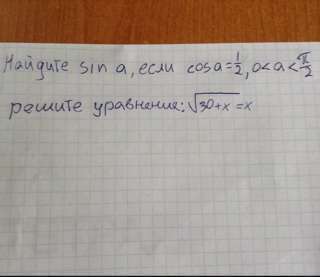 Найдите sin a, если cos a = 1/2, 0 < a < π/2
решите уравнение: √30+x = x